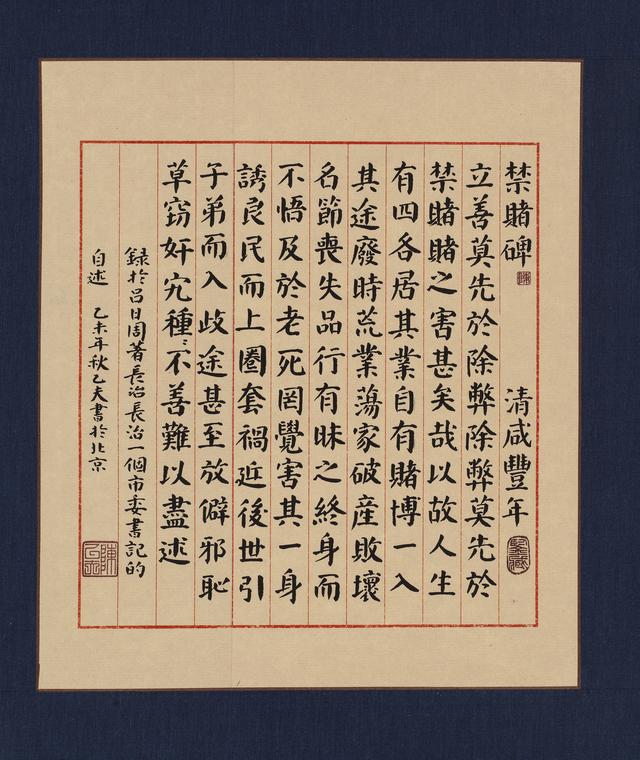 禁賭碑 清咸豐年
立善莫先於除弊除弊莫先於
禁賭賭之害甚矣哉以故人生
有四各居其業自有賭博一入
其途廢時荒業蕩家破產敗壞
名節喪失品行有昧之終身而
不悟及於老死罔覺害其一身
誘良民而上圈套禍近後世引
子弟而入歧途甚至放僻邪恥
草竊奸宄種〻不善難以盡述
録於吕日周著長治長治一個市委書記的
自述 乙未年秋乙夫書於北京